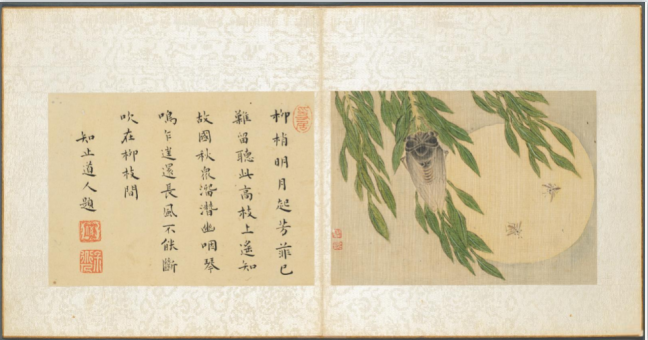 柳梢明月起芳菲已
難留聽此高枝上遙知
故國秋泉潛潛幽咽琴
鳴乍遠還長風不能斷
吹在柳枝間
知止道人題